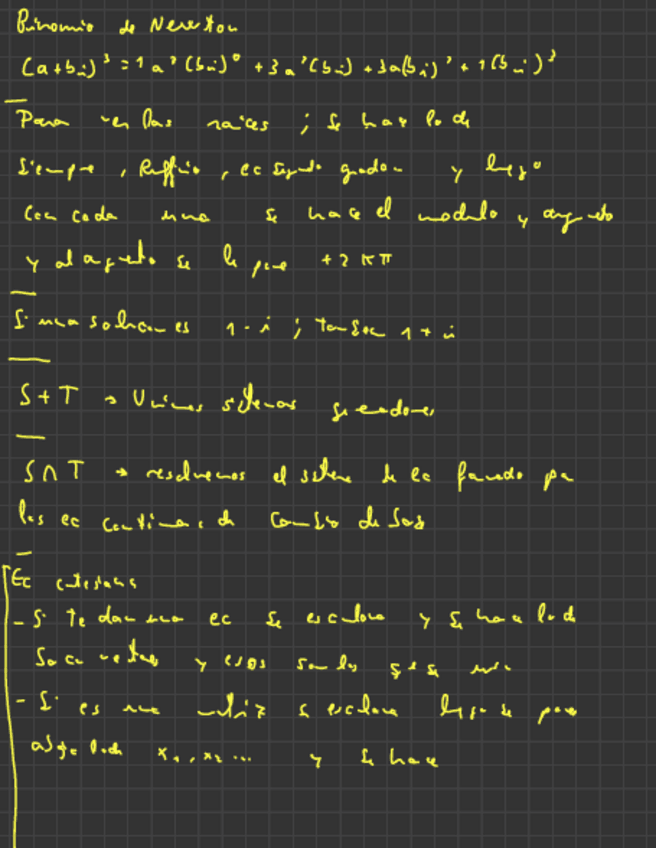 Binomio de Newton
(a+bi)³ = 1 a³ (bi)⁰ + 3 a²(bi) + 3a(bi)² + 1(bi)³
Para ver las raices ; se hace lo de
siempre , Ruffini , ec segundo grado y luego
con cada una se hace el modulo y argumento
y al argumento se le pone + 2 K π
Si una solucion es 1 - i ; tambien 1 + i
S + T → Unimos sistemas generadores
S ∩ T → resolvemos el sistema de ec formado por
las ec cartesianas de cambio de base
Ec cartesianas
- Si te dan una ec se escalona y se hace lo de
sacar vectores y esos son los
- Si es una matriz se escalona luego se pone
x₁, x₂ ... y se hace